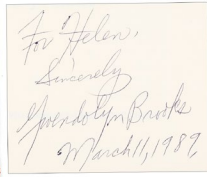 For Helen,
Sincerely
Gwendolyn Brooks
March 11, 1989.